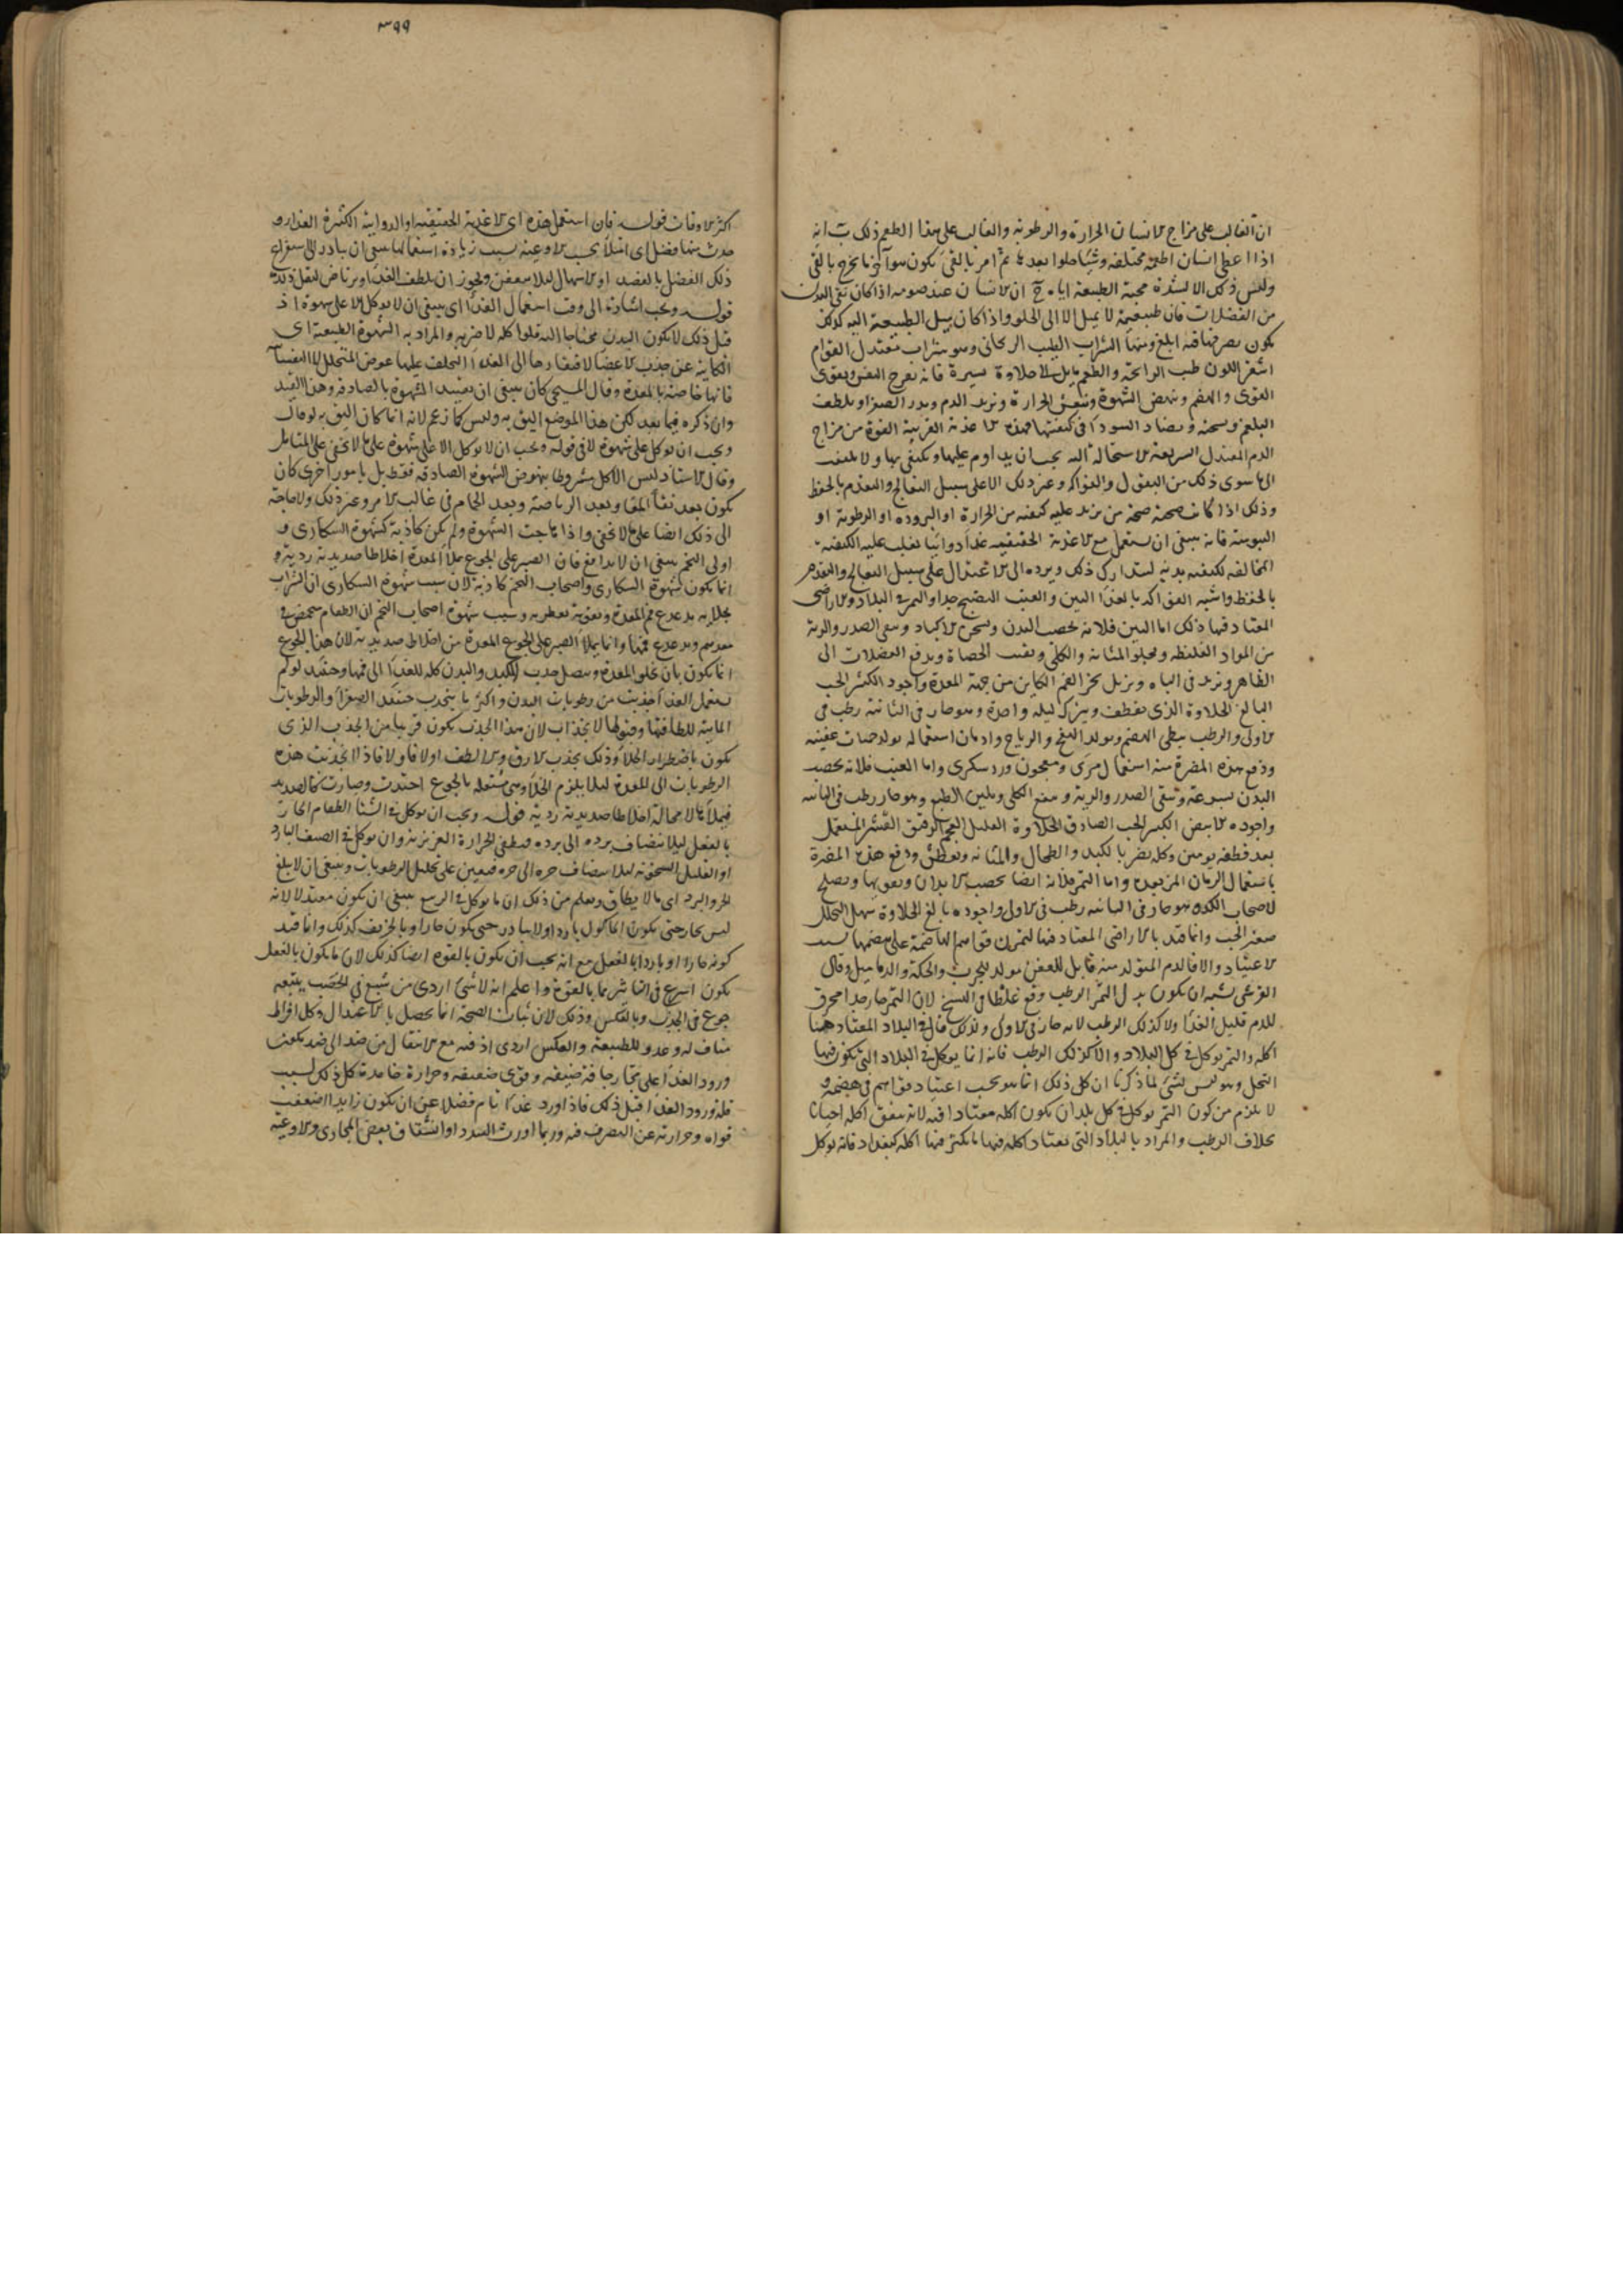 ان الغالب على مزاج الانسان الحرارة والرطوبة والغالب على هذا الطعم ذلك ب انه
اذا اعطى انسان اطعمة مختلفة وشيئا حلوا بعدها ثم امر بالقى يكون هو آخر ما يخرج بالقى
وليس ذلك الا لشدة محبة الطبيعة اياه ج ان الانسان عند صومه اذا كان نقى البدن
من الفضلات فان طبيعته لا يميل الا الى الحلو واذا كان ميل الطبيعة اليه كذلك
يكون تصرفها فيه ابلغ ومنها الشراب الطيب الريحانى وهو شراب معتدل القوام
اشقر اللون طيب الرائحة والطعم مايل الى حلاوة يسيرة فانه يفرح النفس ويقوى
القوى والهضم وينهض الشهوة وينعش الحرارة ويزيد الدم ويدر الصفرا ويلطف
البلغم ويسخنه ويضاد السودا فى كيفيتها فهذه الاغذية القريبة القوة من مزاج
الدم المعتدل السريعة الاستحالة اليه يجب ان يداوم عليها ويكتفى بها ولا يلتفت
الى ما سوى ذلك من البقول والفواكه وغير ذلك الا على سبيل التعالج والتقدم بالحفظ
وذلك اذا كانت صحته صحة من يزيد عليه كيفية من الحرارة او البرودة او الرطوبة او
اليبوسة فانه ينبغى ان يستعمل مع الاغذية الحقيقية غذا دوائيا يغلب عليه الكيفية
المخالفة لكيفية بدنه ليتدارك ذلك ويرده الى الاعتدال على سبيل التعالج والتقدم
بالحفظ واشبه الفواكه بالغذا التين والعنب النضيج جدا والتمر فى البلاد والاراضى
المعتاد فيها ذلك اما التين فلانه يخصب البدن ويسخن الاكباد وينقى الصدر والرية
من المواد الغليظة ويجلو المثانة والكلى ويفتت الحصاة ويدفع الفضلات الى
الظاهر ويزيد فى الباه ويزيل بخر الفم الكاين من جهة المعدة واجوده الكثير الحب
البالغ الحلاوة الذى يقطف ويترك ليلة واحدة وهو حار فى الثانية رطب فى
الاولى والرطب بطى الهضم ويولد النفخ والرياح وادمان استعماله يولد حميات عفنية
ودفع هذه المضرة منه استعمال مرى ومعجون ورد سكرى واما العنب فلانه يخصب
البدن بسرعة وينقى الصدر والرية وينفع الكلى ويلين الطبع وهو حار رطب فى الثانية
واجوده الابيض الكبير الحب الصادق الحلاوة القليل العجم الرقيق القشر المستعمل
بعد قطفه بيومين وكله يضر بالكبد والطحال والمثانة ويعطش ودفع هذه المضرة
باستعمال الرمان المز بعده واما التمر فلانه ايضا يخصب الابدان ويقويها ويصلح
لاصحاب الكد وهو حار فى الثانية رطب فى الاول واجوده بالغ الحلاوة سهل التحلل
صغير الحب وانما قيد بالاراضى المعتاد فيها لتمرن قواهم الهاضمة على هضمها بسبب
الاعتياد والا فالدم المتولد منه قابل للعفن مولد للجرب والحكة والدماميل وقال
القرشى يشبه ان يكون بدل التمر الرطب وقع غلطا فى النسخ لان التمر حار جدا محرق
للدم قليل الغذا ولا كذلك الرطب لانه حار فى الاولى ولذلك قال فى البلاد المعتاد فيها
اكله والتمر يوكل فى كل البلاد ولا كذلك الرطب فانه انما يوكل فى البلاد التى يكون فيها
النخل وهو ليس بشى لما ذكرنا ان كل ذلك انما هو بحسب اعتياد قواهم فى هضمه و
لا يلزم من كون التمر يوكل فى كل بلد ان يكون اكله معتادا فيه لانه يتفق اكله احيانا
بخلاف الرطب والمراد بالبلاد التى يعتاد اكله فيها ما يكثر فيها اكله كبغداد فانه يوكل
٣٩٩
اكثر الاوقات قوله فان استعمل هذه اى الاغذية الحقيقية او الدوائية الكثيرة الغذا و
حدث منها فضل اى امتلا بحسب الاوعية بسبب زيادة استعمالها ينبغى ان يبادر الى استفراغ
ذلك الفضل بالفصد او الاسهال ليلا يتعفن ويجوز ان يلطف الغذا ويرتاض ليقل ذلك
قوله ويجب اشارة الى وقت استعمال الغذا اى ينبغى ان لا يوكل الا على شهوة اذ
قبل ذلك لا يكون البدن محتاجا اليه فلو اكله لاضر به والمراد به الشهوة الطبيعية اى
الكاينة عن جذب الاعضا لافتقارها الى الغذا المخلف عليها عوض المتحلل لا النفسانية
فانها خاصة بالمعدة وقال المسيحى كان ينبغى ان يقيد الشهوة بالصادقة وهذا القيد
وان ذكره فيما بعد لكن هذا الموضع اليق به وليس كما زعم لانه انما كان اليق به لو قال
ويجب ان يوكل على شهوة لا فى قوله ويجب ان لا يوكل الا على شهوة على ما لا يخفى على المتامل
وقال الاستاد ليس الاكل مشروطا بنهوض الشهوة الصادقة فقط بل بامور اخرى كان
يكون بعد نقا المعا وبعد الرياضة وبعد الحمام فى غالب الامر وغير ذلك ولا حاجة
الى ذلك ايضا على ما لا يخفى واذا هاجت الشهوة ولم يكن كاذبة كشهوة السكارى و
اولى التخم ينبغى ان لا يدافع فان الصبر على الجوع يملا المعدة اخلاطا صديدية ردية و
انما يكون شهوة السكارى واصحاب التخم كاذبة لان سبب شهوة السكارى ان الشراب
بجلايه يدغدغ فم المعدة ويقويه بعطريته وسبب شهوة اصحاب التخم ان الطعام يتحمض فى
معدتهم ويدغدغ فمها وانما يملا الصبر على الجوع المعدة من اخلاط صديدية لان هذا الجوع
انما يكون بان يخلو المعدة ويتصل جذب الكبد والبدن كله للغذا الى فمها وحينئذ لو لم
يستعمل الغذا اجتذبت من رطوبات البدن واكثر ما ينجذب حينئذ الصفرا والرطوبات
المايية للطافتها وقبولها لانجذاب لان هذا الجذب يكون قريبا من الجذب الذى
يكون باضطرار الخلا وذلك يجذب الارق والالطف اولا فاولا فاذا انجذبت هذه
الرطوبات الى المعدة ليلا يلزم الخلا وهى مشتعلة بالجوع احتدت وصارت كالصديد
فيملاها لا محالة اخلاطا صديدية ردية قوله ويجب ان يوكل فى الشتا الطعام الحار
بالفعل ليلا ينضاف برده الى برده فيطفى الحرارة الغريزية وان يوكل فى الصيف البارد
او القليل السخونة ليلا ينضاف حره الى حره فيعين على تحليل الرطوبات وينبغى ان لا يبلغ
الحر والبرد اى ما لا يطاق ويعلم من ذلك ان ما يوكل فى الربيع ينبغى ان يكون معتدلا لانه
ليس بحار حتى يكون الماكول باردا ولا ببارد حتى يكون حارا وبالخريف كذلك وانما قيد
كونه حارا او باردا بالفعل مع انه يجب ان يكون بالقوة ايضا كذلك لان ما يكون بالفعل
يكون اسرع فى التاثير مما بالقوة واعلم انه لا شى اردى من شبع فى الخصب يتبعه
جوع فى الجدب وبالعكس وذلك لان ثبات الصحة انما يحصل بالاعتدال وكل افراط
مناف له وعدو للطبيعة والعكس اردى اذ فيه مع الانتقال من ضد الى ضد يكون
ورود الغذا على مجار جافة ضيقة وقوى ضعيفة وحرارة خامدة كل ذلك بسبب
قلة ورود الغذا قبل ذلك فاذا ورد غذا تام فضلا عن ان يكون زايدا اضعفت
قواه وحرارته عن التصرف فيه وربما اورث السدد او انشقاق بعض المجارى والاوعية